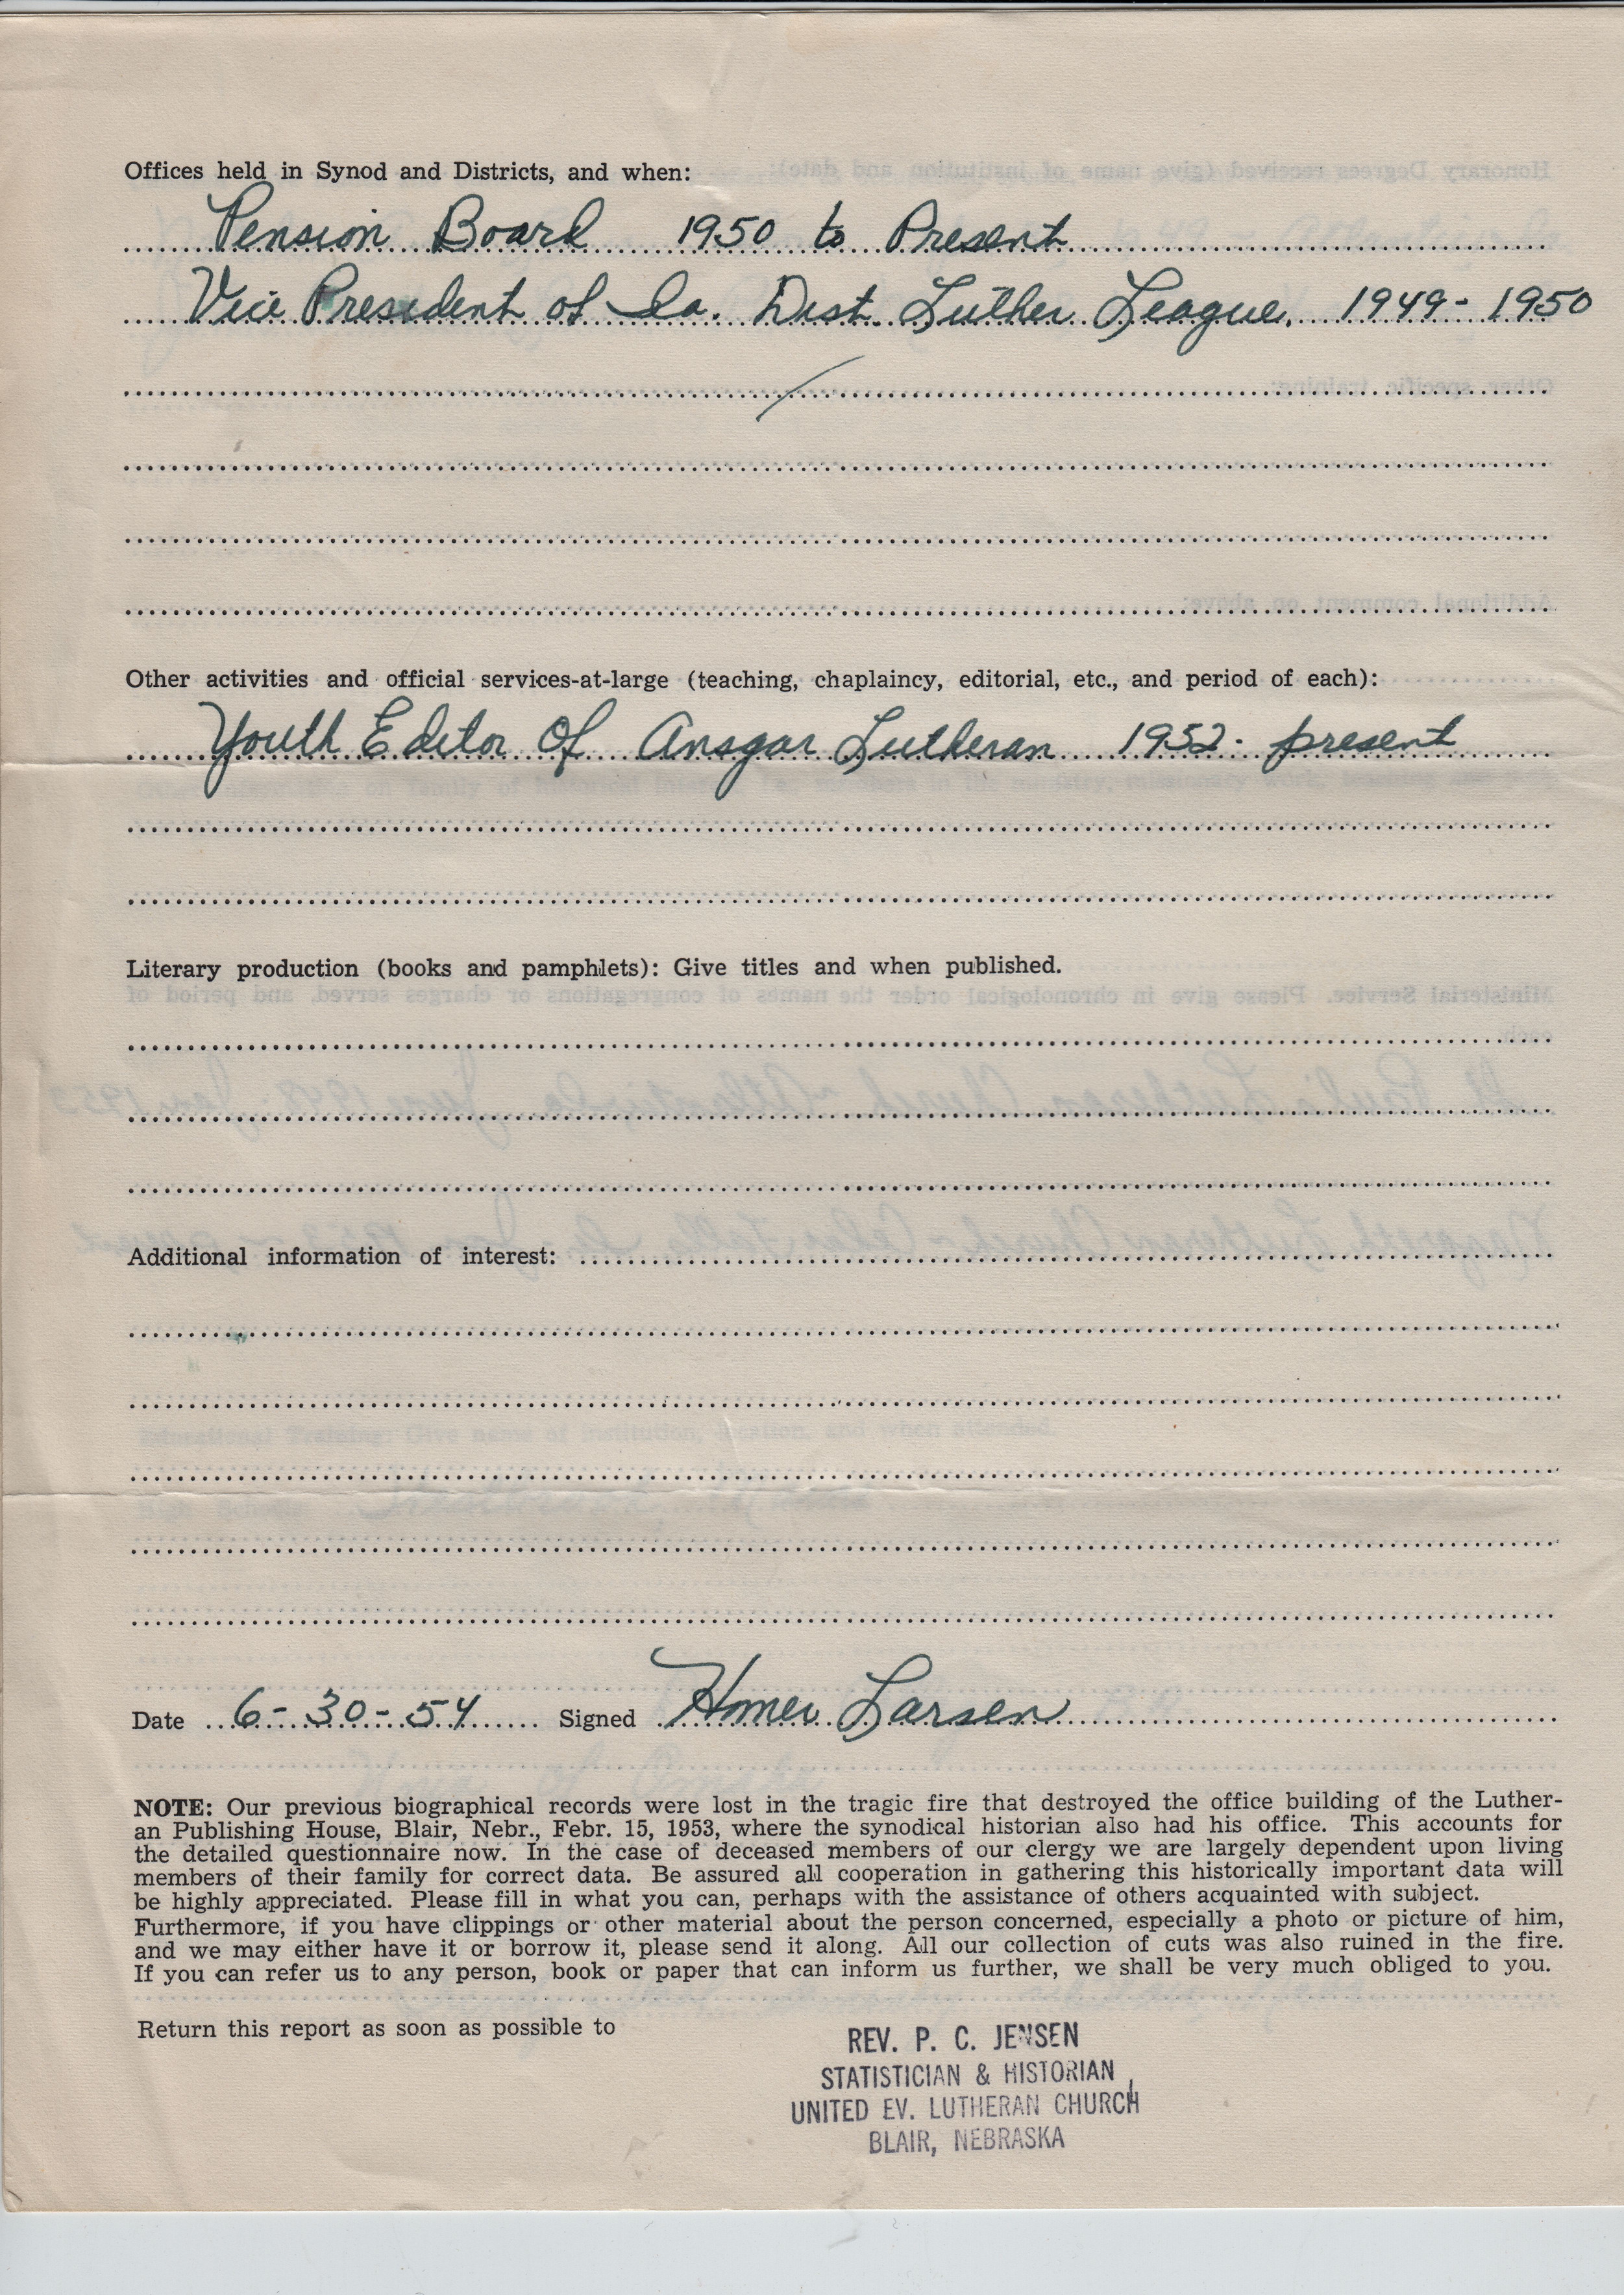 Offices held in Synod and Districts, and when:
Pension Board 1950 to Present
Vice President of Ia. Dist. Luther League, 1949-1950
Other activities and official services-at-large (teaching, chaplaincy, editorial, etc., and period of each):
Youth Editor Of Ansgar Lutheran 1952- present
Literary production (books and pamphlets): Give titles and when published.
Additional information of interest:
Date 6-30-54 Signed Homer Larsen
NOTE: Our previous biographical records were lost in the tragic fire that destroyed the office building of the Luther-
an Publishing House, Blair, Nebr., Febr. 15, 1953, where the synodical historian also had his office. This accounts for
the detailed questionnaire now. In the case of deceased members of our clergy we are largely dependent upon living
members of their family for correct data. Be assured all cooperation in gathering this historically important data will
be highly appreciated. Please fill in what you can, perhaps with the assistance of others acquainted with subject.
Furthermore, if you have clippings or other material about the person concerned, especially a photo or picture of him,
and we may either have it or borrow it, please send it along. All our collection of cuts was also ruined in the fire.
If you can refer us to any person, book or paper that can inform us further, we shall be very much obliged to you.
Return this report as soon as possible to
REV. P. C. JENSEN
STATISTICIAN & HISTORIAN
UNITED EV. LUTHERAN CHURCH
BLAIR, NEBRASKA